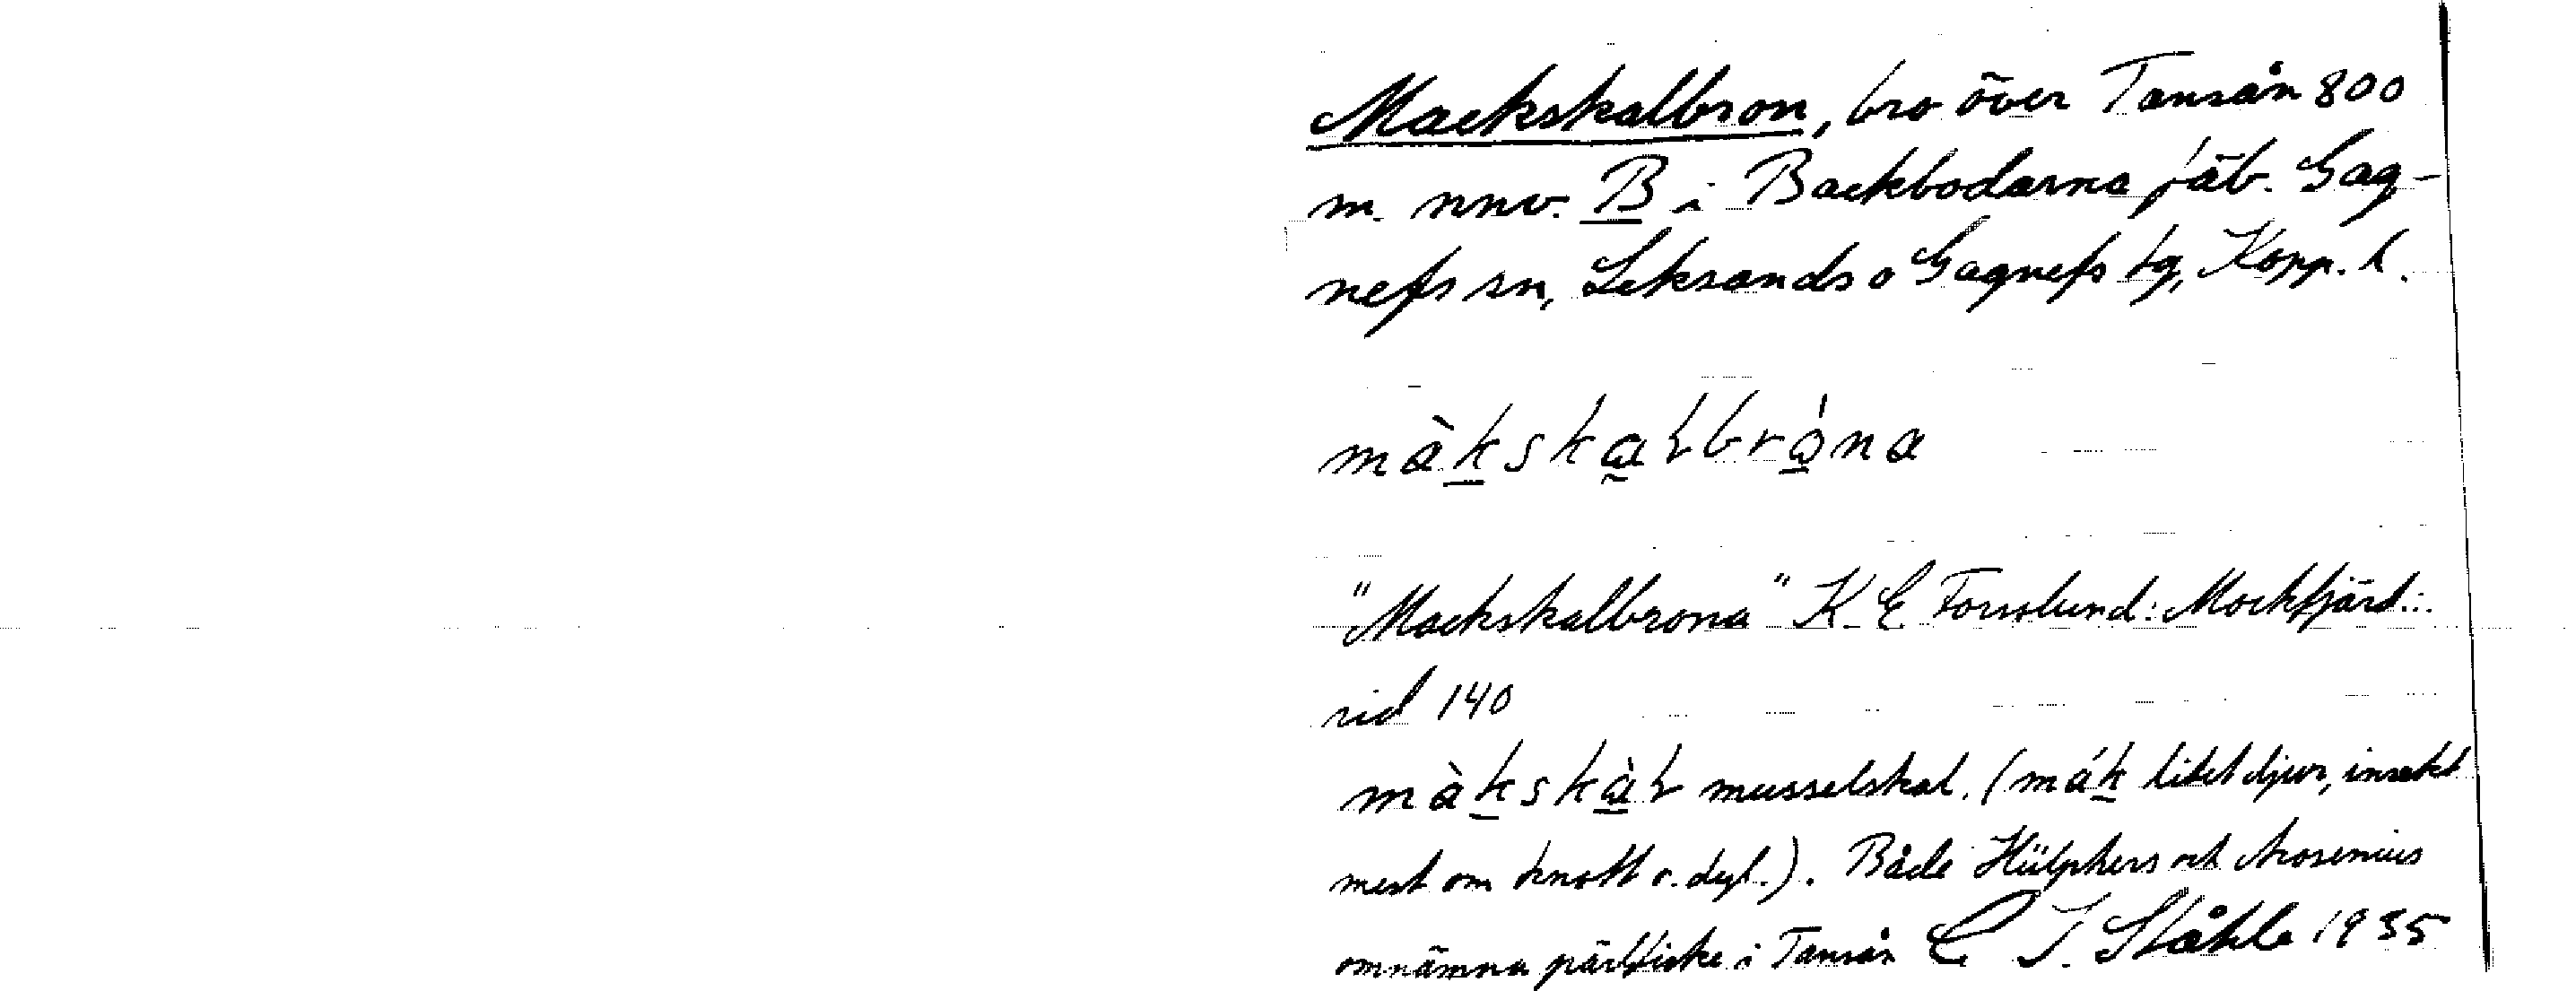 Mackskalbron, bro över Tansån 800
m. nnv. B i Backbodarna fäb. Gag-
nefs sn, Leksands o Gagnefs tg, Kopp. l.
màkskaɭbrȯ́na
"Mackskalbrona" K-E Forsslund: Mockfjärd...
sid 140
màkskàɭ musselskal. (mák litet djur, insekt
mest om knott o. dyl.). Både Hülphers och Arosenius
omnämna pärlfiske i Tansån C I. Ståhle 1935